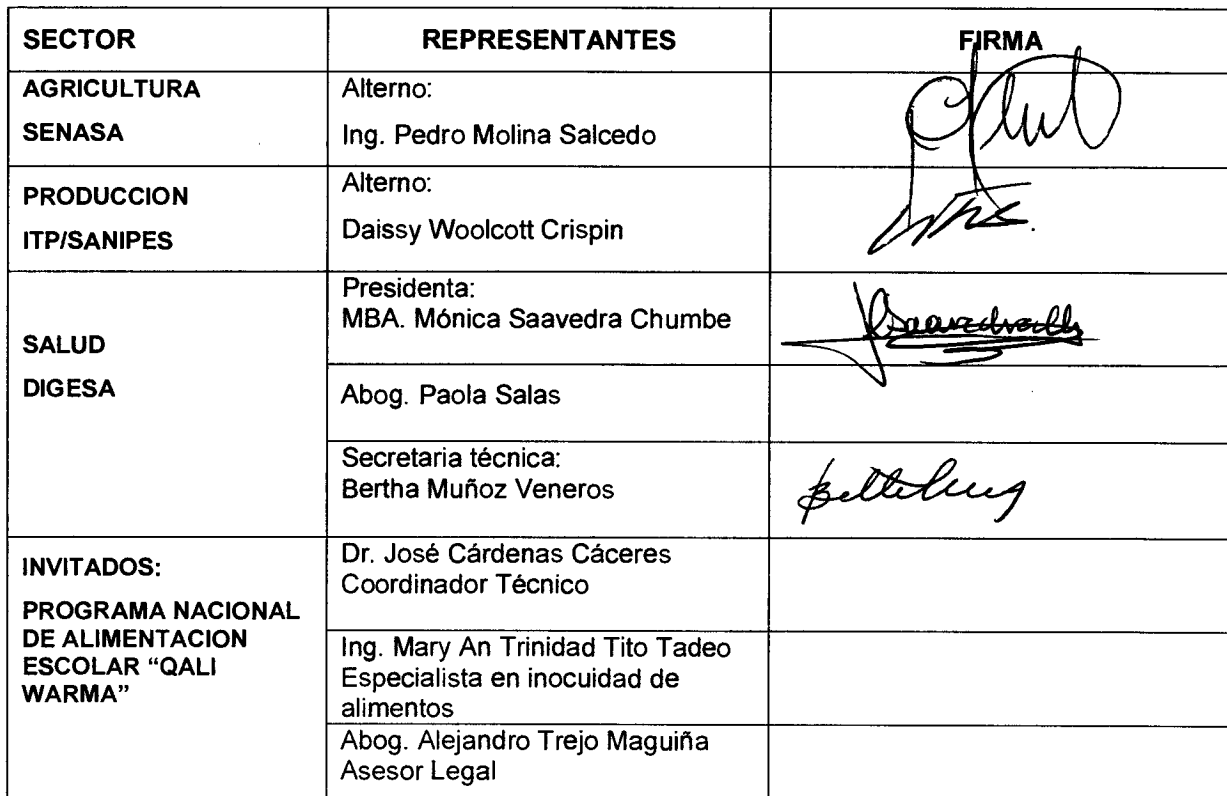 SECTOR REPRESENTANTES FIRMA
AGRICULTURA
SENASA
Alterno:
Ing. Pedro Molina Salcedo
PRODUCCION
ITP/SANIPES
Alterno:
Daissy Woolcott Crispin
SALUD
DIGESA
Presidenta:
MBA. Mónica Saavedra Chumbe
Abog. Paola Salas
Secretaria técnica:
Bertha Muñoz Veneros
INVITADOS:
PROGRAMA NACIONAL
DE ALIMENTACION
ESCOLAR “QALI
WARMA”
Dr. José Cárdenas Cáceres
Coordinador Técnico
Ing. Mary An Trinidad Tito Tadeo
Especialista en inocuidad de
alimentos
Abog. Alejandro Trejo Maguiña
Asesor Legal